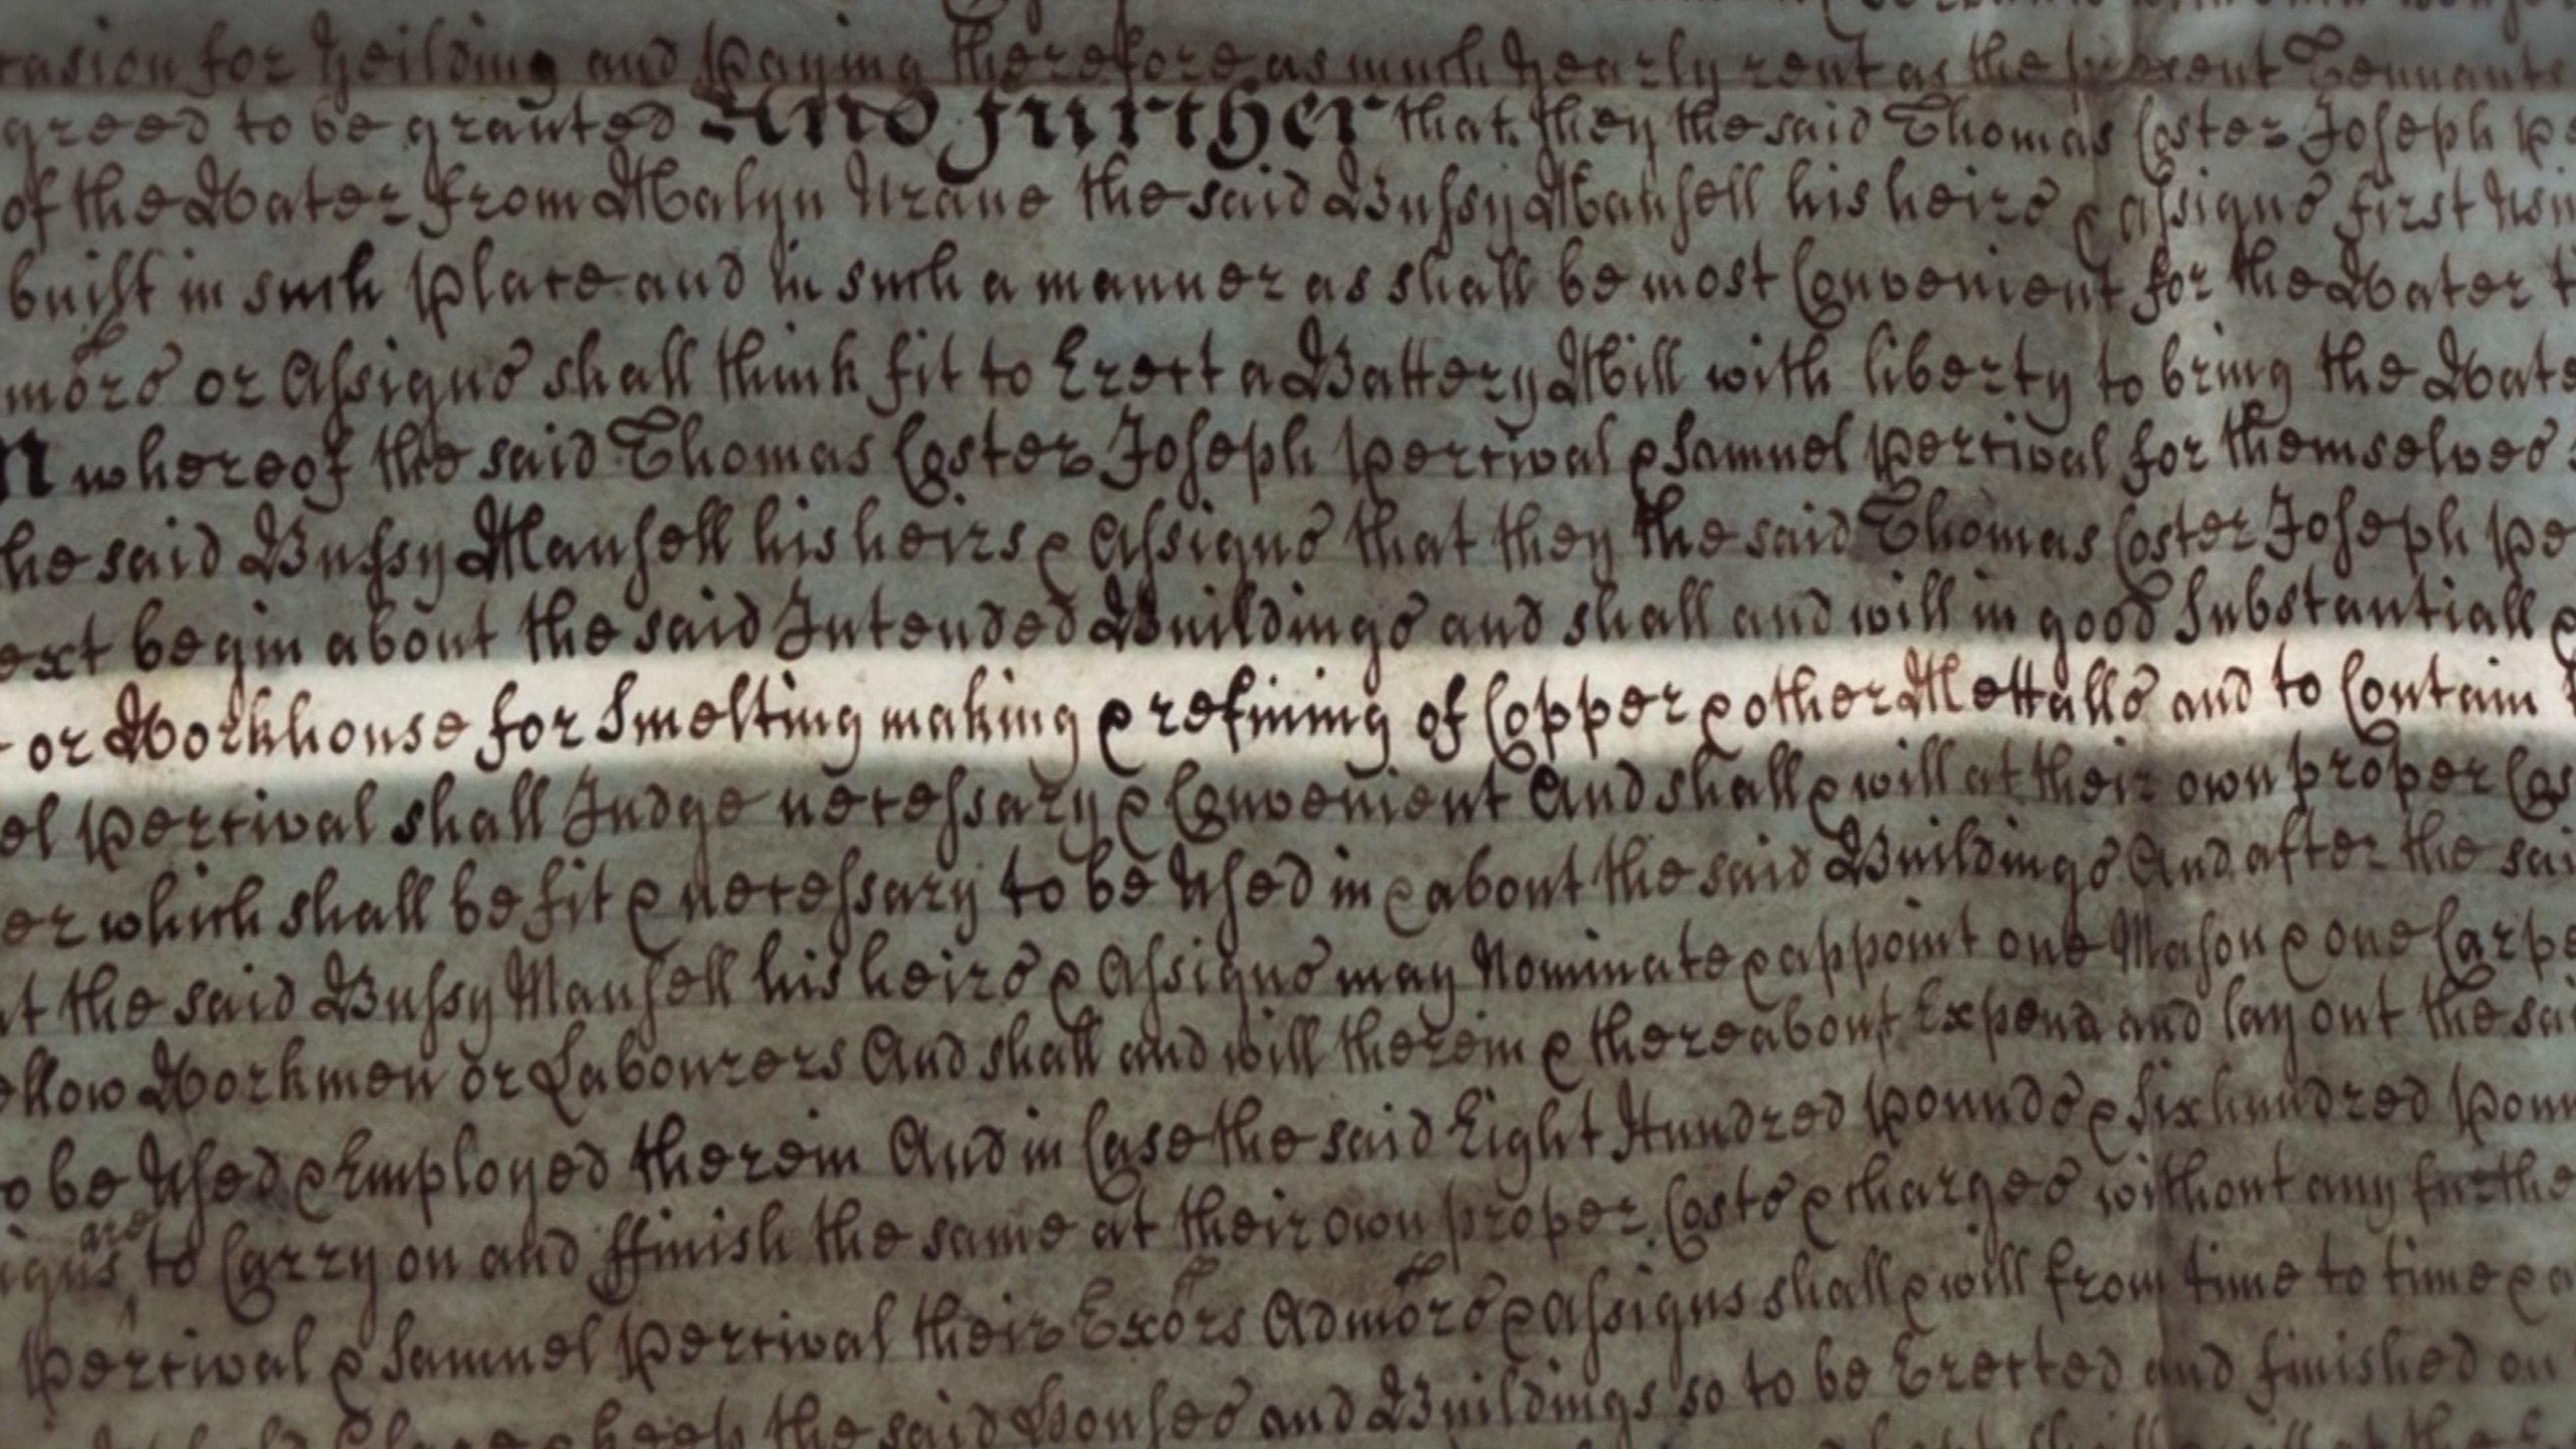 for Yeilding and Paying therefore as much Yearly rent as the present Tennants
greed to be granted And further that they the said Thomas Coster Joseph P
of the Water from Malyn Urane the said Bussy Mansell his heirs & assigns first
built in such Place and in such a manner as shall be most Convenient for the Water t
mors or Assigns shall think fit to Erect a Battery Mill with liberty to bring the Wate
n whereof the said Thomas Coster Joseph Percival & Samuel Percival for themselves
he said Bussy Mansell his heirs & Assigns that they the said Thomas Coster Joseph Pe
ext begin about the said Intended Buildings and shall and will in good Substantiall &
or Workhouse for Smelting making & refining of Copper & other Mettalls and to Contain
el Percival shall Judge necessary & Convenient And shall & will at their own proper Cos
er which shall be fit & necessary to be Used in & about the said Buildings And after the sai
at the said Bussy Mansell his heirs & Assigns may Nominate & appoint one Mason & one Carpe
ellow Workmen or Labourers And shall and will therein & thereabout Expend and lay out the sa
o be Used & Employed therein And in Case the said Eight Hundred Pounds & Six hundred Poun
igns are to Carry on and ffinish the same at their own proper Costs & charges without any furthe
Percival & Samuel Percival their Exors Admors & Assigns shall & will from time to time & a
keep the said Houses and Buildings so to be Erected and finished on